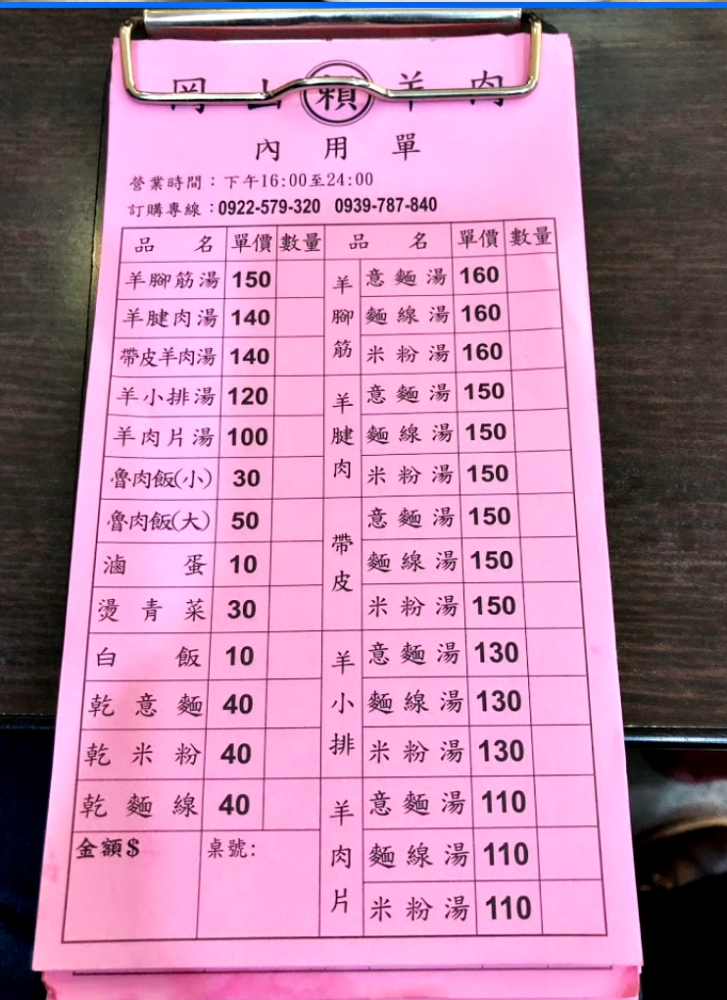 岡山賴羊肉
內用單
營業時間：下午16:00至24:00
訂購專線：0922-579-320 0939-787-840
品名 單價 數量 品名 單價 數量
羊腳筋湯 150 羊腳筋 意麵湯 160
羊腱肉湯 140 麵線湯 160
帶皮羊肉湯 140 米粉湯 160
羊小排湯 120 羊腱肉 意麵湯 150
羊肉片湯 100 麵線湯 150
魯肉飯(小) 30 米粉湯 150
魯肉飯(大) 50 帶皮 意麵湯 150
滷蛋 10 麵線湯 150
燙青菜 30 米粉湯 150
白飯 10 羊小排 意麵湯 130
乾意麵 40 麵線湯 130
乾米粉 40 米粉湯 130
乾麵線 40 羊肉片 意麵湯 110
金額$ 桌號: 麵線湯 110
米粉湯 110